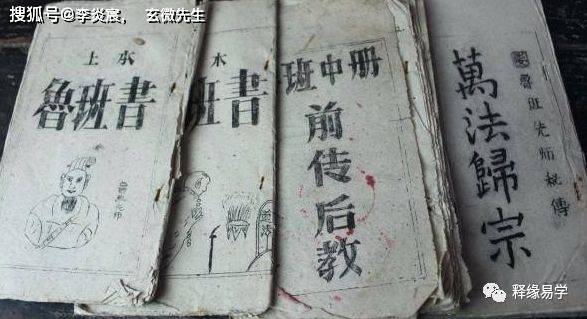 搜狐号@李炎宸, 玄微先生
上本
魯班書
本
班書
班中册
前传后教
魯班先师秘傳
萬法歸宗
释缘易学